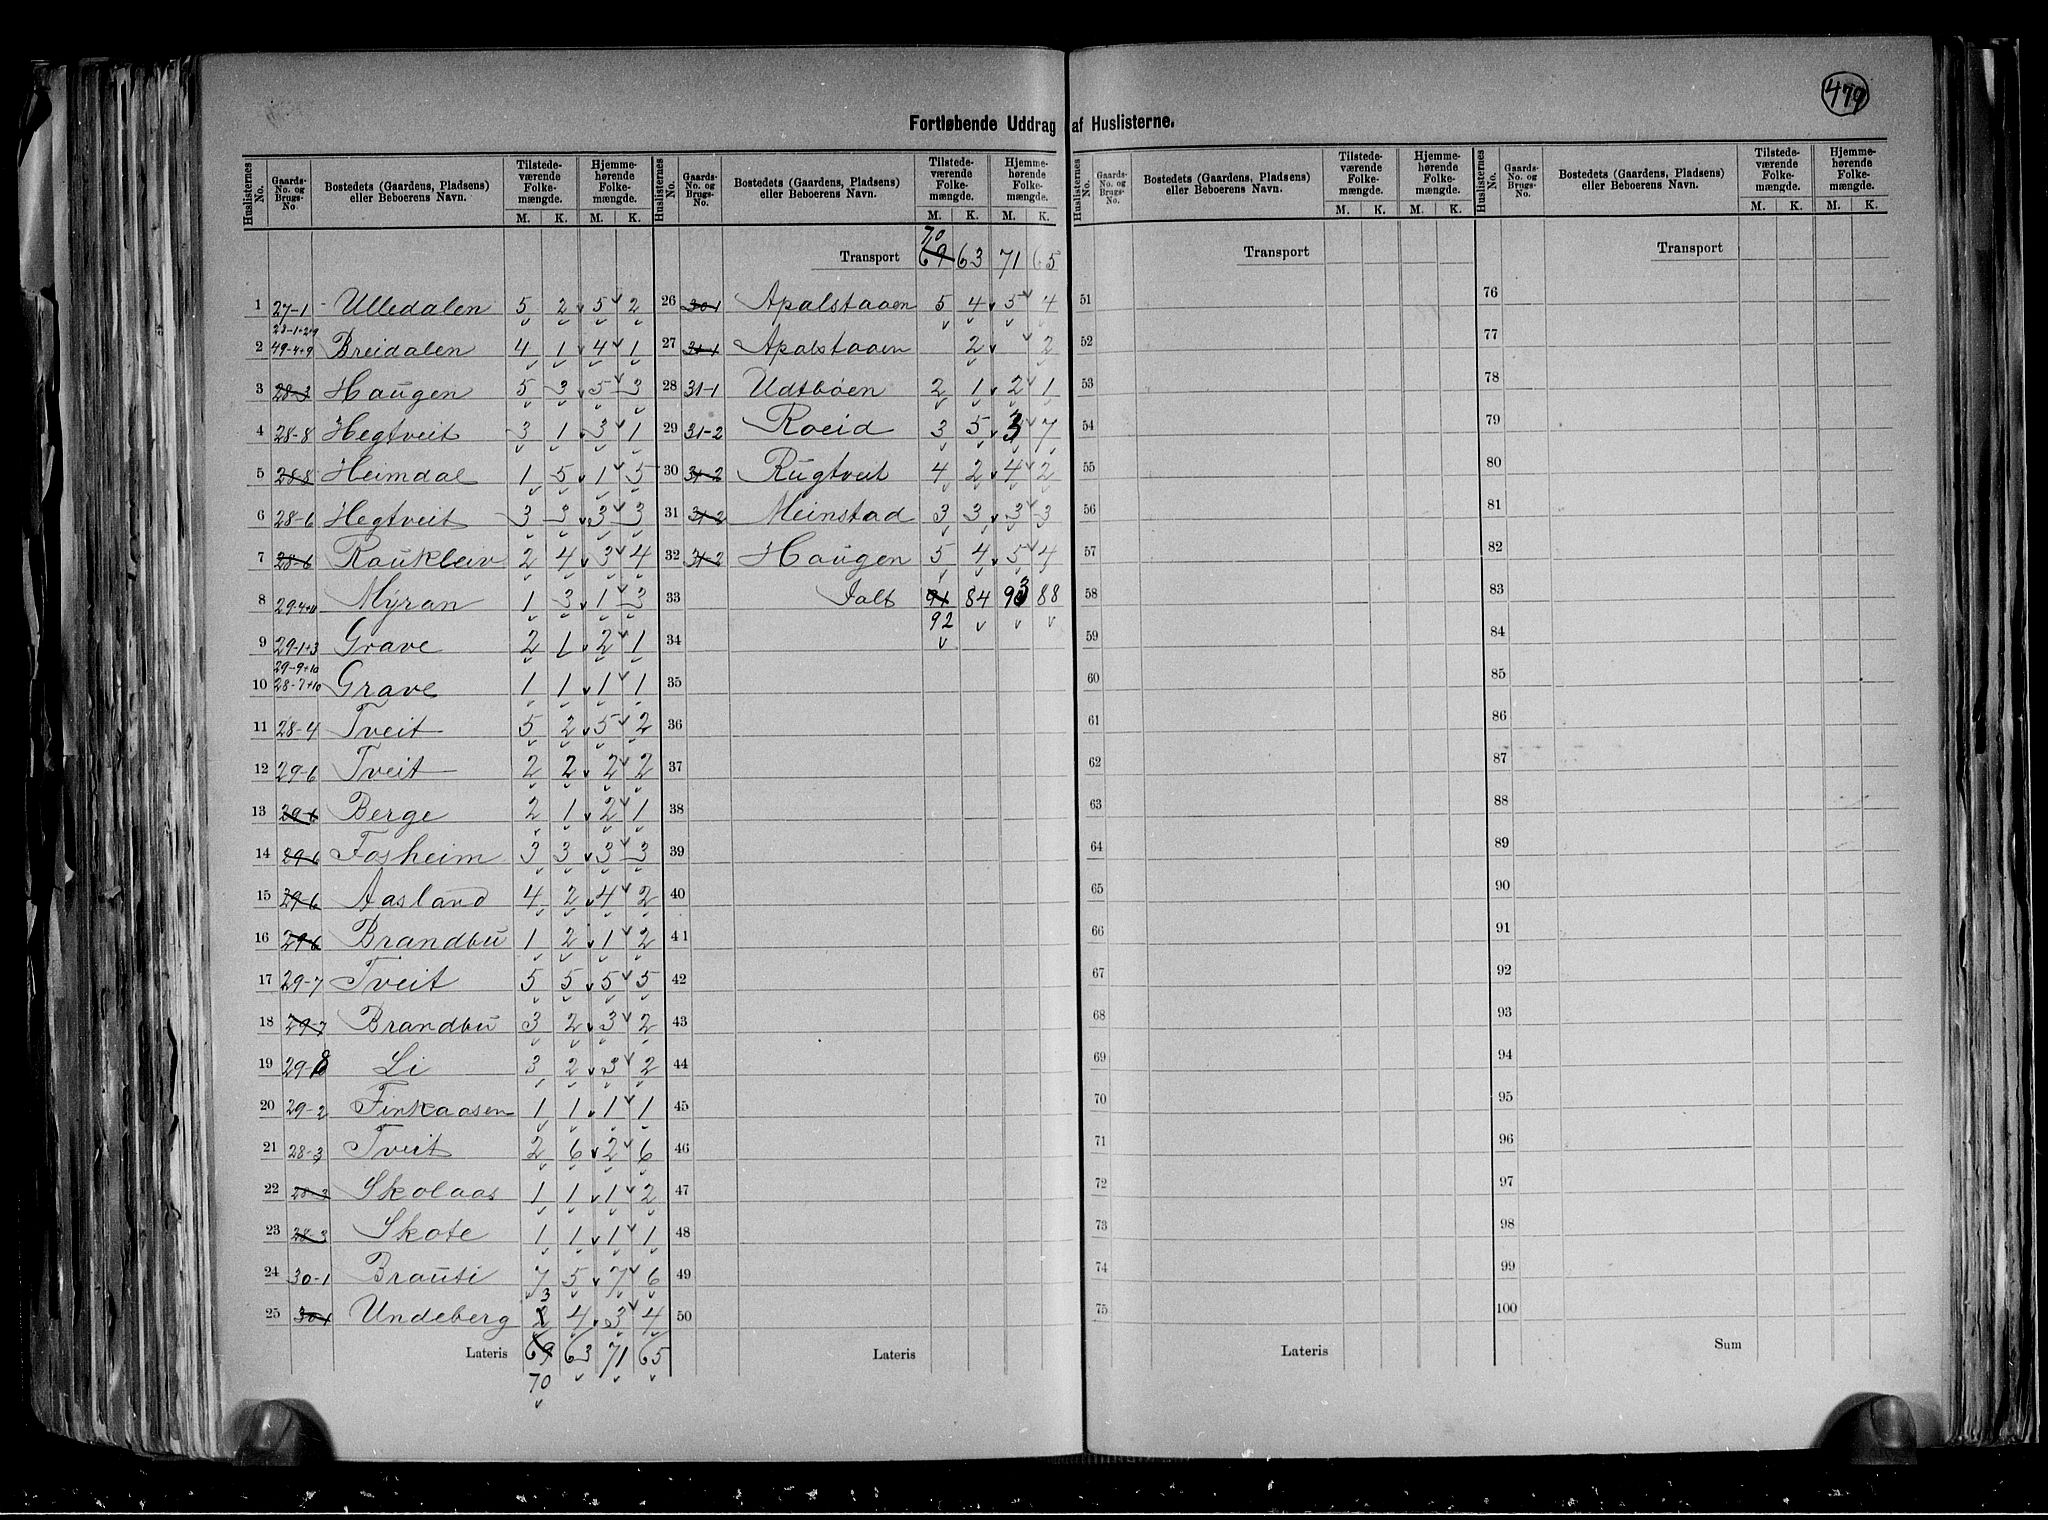 479
Fortløbende Uddrag af Huslisterne.
Huslisternes No. | Gaards-No. og Brugs-No. | Bostedets (Gaardens, Pladsens) eller Beboerens Navn. | Tilstedeværende Folkemængde. M. K. | Hjemmehørende Folkemængde. M. K.
1 27-1 Ulledalen 5 2 5 2
2 28-1+2+9 49-4+9 Breidalen 4 1 4 1
3 28-3 Haugen 5 3 5 3
4 28-8 Hegtveit 3 1 3 1
5 28-8 Heimdal 1 5 1 5
6 28-6 Hegtveit 3 3 3 3
7 28-6 Raukleiv 2 4 3 4
8 29-4+11 Myran 1 3 1 3
9 29-1+3 Grave 2 1 2 1
10 29-9+10 28-7+10 Grave 1 1 1 1
11 28-4 Tveit 5 2 5 2
12 29-6 Tveit 2 2 2 2
13 29-6 Berge 2 1 2 1
14 29-6 Fosheim 3 3 3 3
15 29-6 Aasland 4 2 4 2
16 29-6 Brandbu 1 2 1 2
17 29-7 Tveit 5 5 5 5
18 29-7 Brandbu 3 2 3 2
19 29-8 Li 3 2 3 2
20 29-2 Finkaasen 1 1 1 1
21 28-3 Tveit 2 6 2 6
22 28-3 Skolaas 1 1 1 2
23 28-3 Skote 1 1 1 1
24 30-1 Brauti 7 5 7 6
25 30-1 Undeberg 2 3 4 3 4
Lateris 69 63 71 65
70
Huslisternes No. | Gaards-No. og Brugs-No. | Bostedets (Gaardens, Pladsens) eller Beboerens Navn. | Tilstedeværende Folkemængde. M. K. | Hjemmehørende Folkemængde. M. K.
70
Transport 69 63 71 65
26 30-1 Apalstaaen 5 4 5 4
27 31-1 Apalstaaen 2 2
28 31-1 Udtbøen 2 1 2 1
29 31-2 Roeid 3 5 3 7
30 31-2 Rugtveit 4 2 4 2
31 31-2 Meinstad 3 3 3 3
32 31-2 Haugen 5 4 5 4
33 Ialt 91 84 93 88
92
34
35
36
37
38
39
40
41
42
43
44
45
46
47
48
49
50
Lateris
Huslisternes No. | Gaards-No. og Brugs-No. | Bostedets (Gaardens, Pladsens) eller Beboerens Navn. | Tilstedeværende Folkemængde. M. K. | Hjemmehørende Folkemængde. M. K.
Transport
51
52
53
54
55
56
57
58
59
60
61
62
63
64
65
66
67
68
69
70
71
72
73
74
75
Lateris
Huslisternes No. | Gaards-No. og Brugs-No. | Bostedets (Gaardens, Pladsens) eller Beboerens Navn. | Tilstedeværende Folkemængde. M. K. | Hjemmehørende Folkemængde. M. K.
Transport
76
77
78
79
80
81
82
83
84
85
86
87
88
89
90
91
92
93
94
95
96
97
98
99
100
Sum